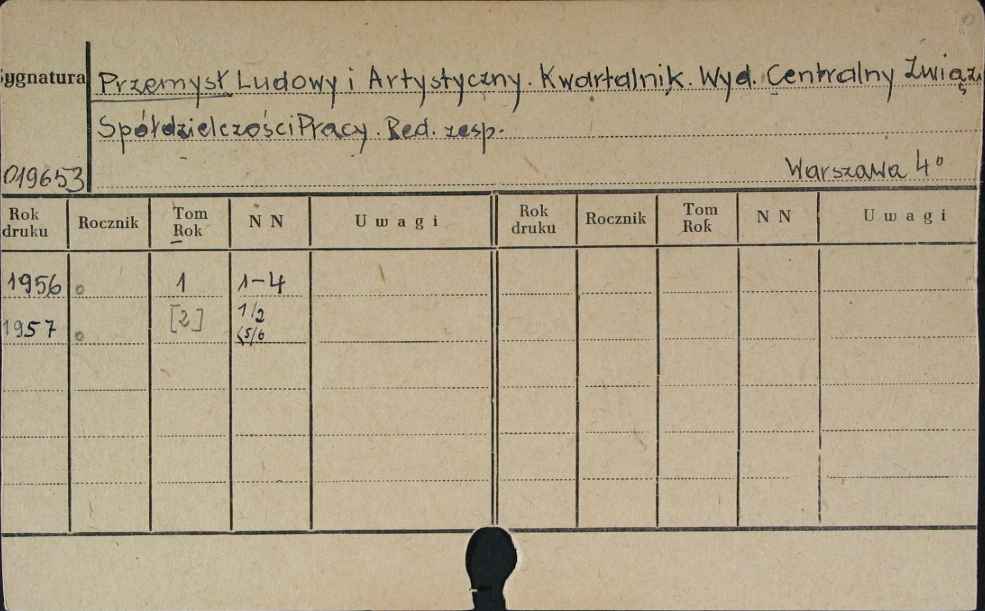 Sygnatura Przemysł Ludowy i Artystyczny. Kwartalnik. Wyd. Centralny Związ.
Spółdzielczości Pracy. Red. zesp.
019653 Warszawa 4°
Rok druku Rocznik Tom Rok N N Uwagi Rok druku Rocznik Tom Rok N N Uwagi
1956 1 1-4
1957 [2] 1/2
5/6